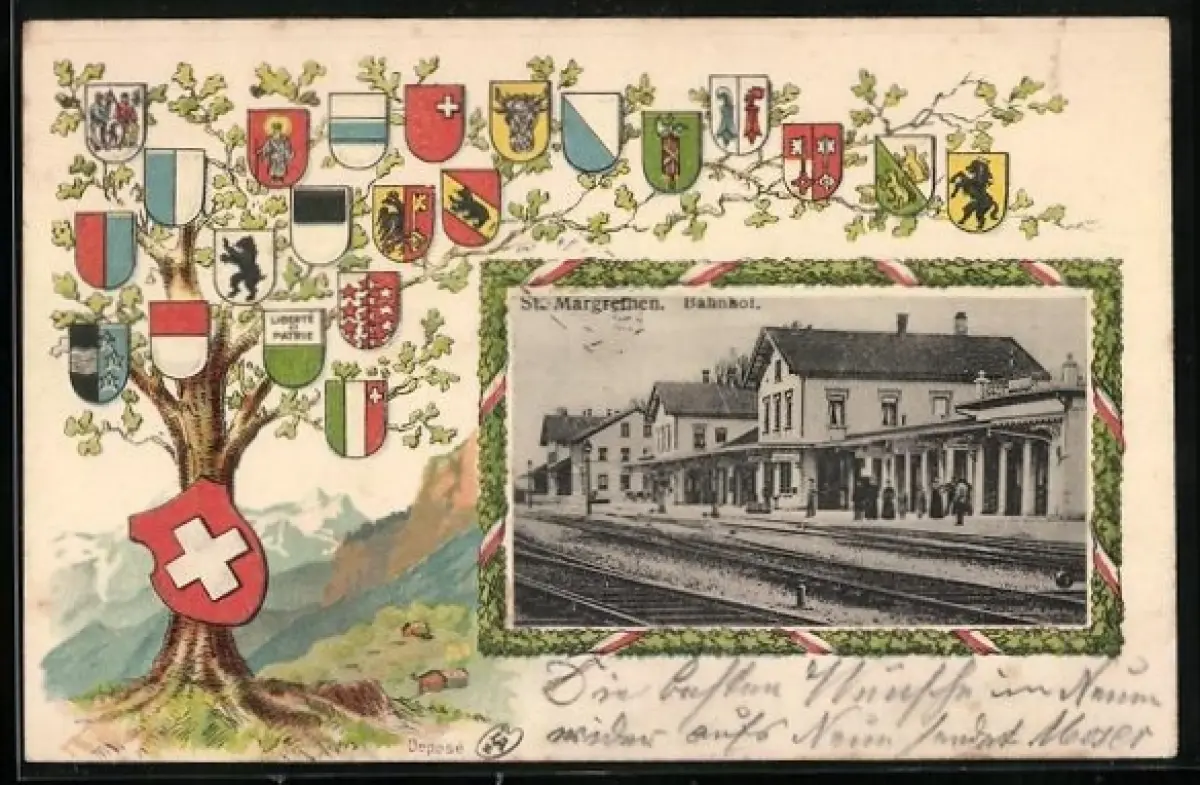 St. Margrethen. Bahnhof.
LIBERTÉ
ET
PATRIE
Déposé
Die besten Wünsche im Neuen
wider aufs Neue sendet Moser